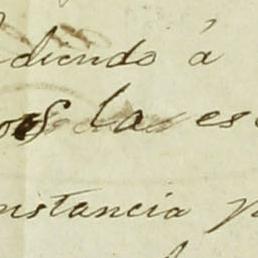 diendo á
os la es
nstancia